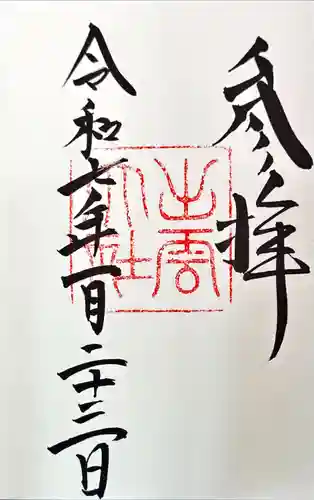 参拝
出雲
大社
令和六年一月二十三日